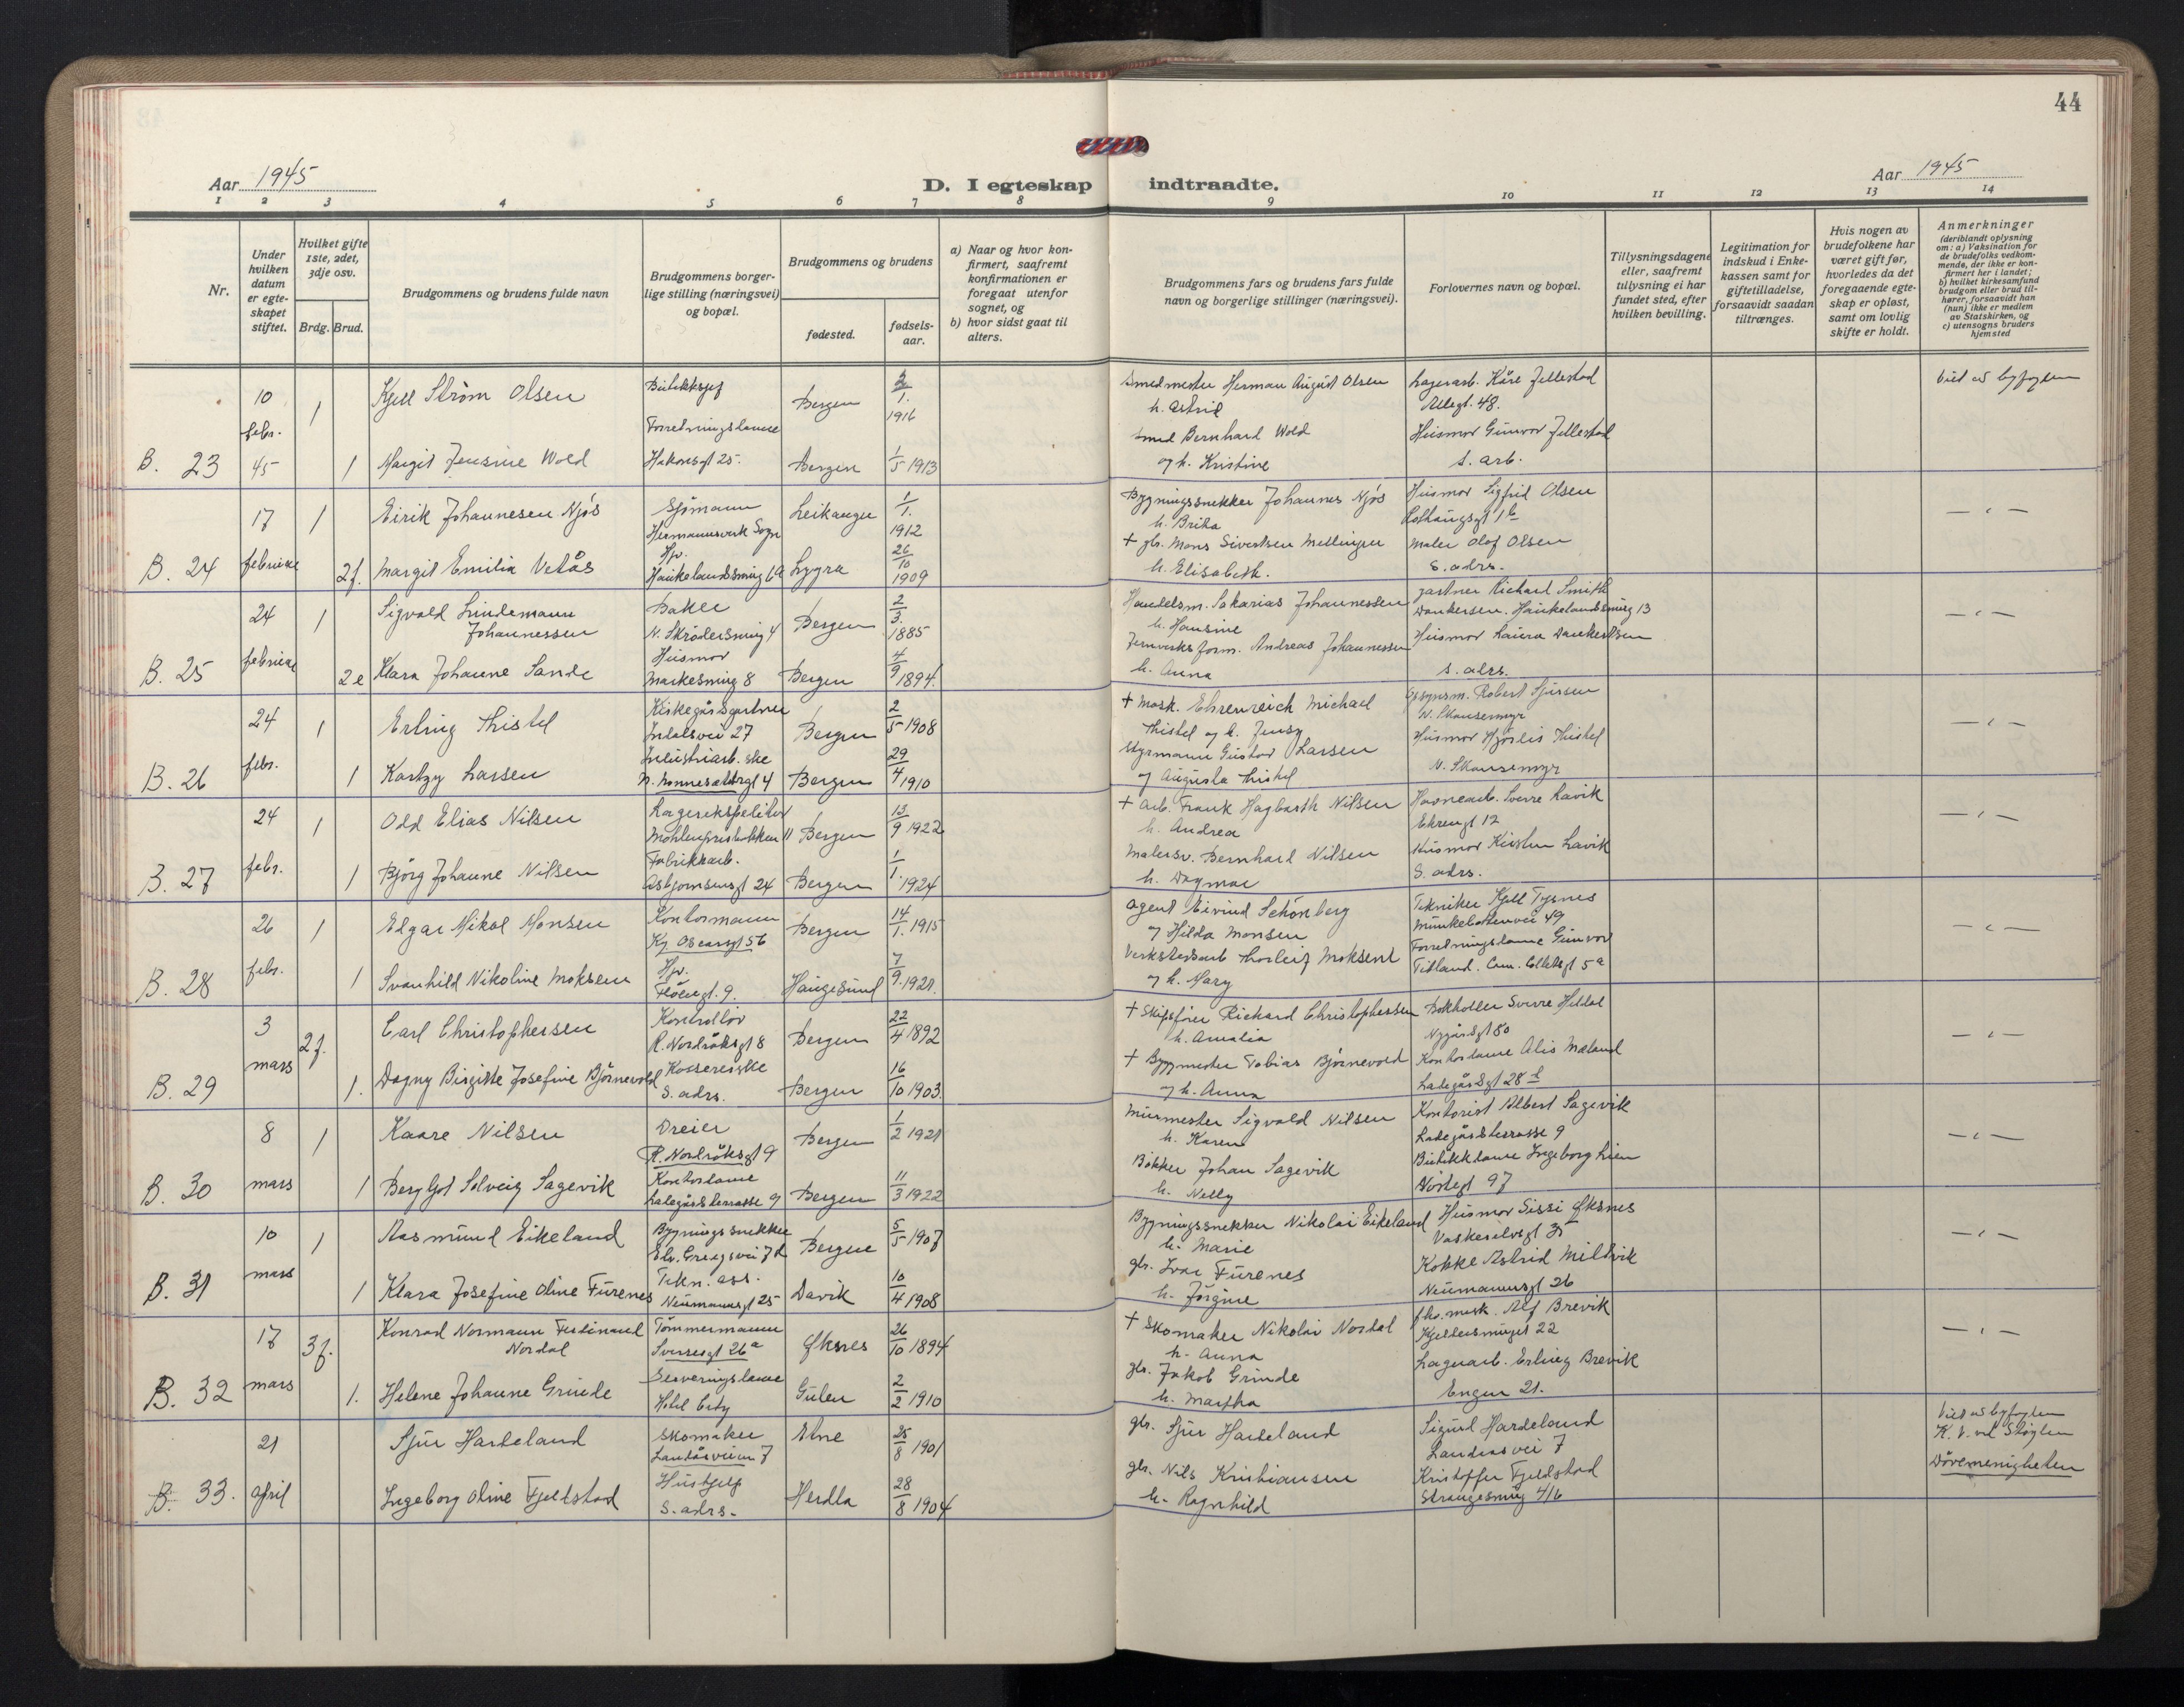 44
Aar 1945
D. I egteskap indtraadte.
Aar 1945
1 2 3 4 5 6 7 8 9 10 11 12 13 14
Nr.
Under hvilken datum er egteskapet stiftet.
Hvilket gifte 1ste, 2det, 3dje osv.
Brdg. Brud.
Brudgommens og brudens fulde navn
Brudgommens borgerlige stilling (næringsvei) og bopæl.
Brudgommens og brudens
fødested.
fødselsaar.
a) Naar og hvor konfirmert, saafremt konfirmationen er foregaat utenfor sognet, og
b) hvor sidst gaat til alters.
Brudgommens fars og brudens fars fulde navn og borgerlige stillinger (næringsvei).
Forlovernes navn og bopæl.
Tillysningsdagene eller, saafremt tillysning ei har fundet sted, efter hvilken bevilling.
Legitimation for indskud i Enkekassen samt for giftetilladelse, forsaavidt saadan tiltrænges.
Hvis nogen av brudefolkene har været gift før, hvorledes da det foregaaende egteskap er opløst, samt om lovlig skifte er holdt.
Anmerkninger (deriblandt oplysning om: a) Vaksination for de brudefolks vedkommende, der ikke er konfirmert her i landet; b) hvilket kirkesamfund brudgom eller brud tilhører, forsaavidt han (hun) ikke er medlem av Statskirken, og c) utensogns bruders hjemsted
B. 23
10 febr. 45
1
Kjell Strøm Olsen
Butikksjef
Bergen
1916
Smedmester Herman August Olsen
h. Astrid
Lagerarb. Kåre Jellestad
Allegt. 48.
Viet av byfogden
1
Margit Jensine Wold
Forretningsdame
Hakonsgt 25.
Bergen
1/5 1913
Smed Bernhard Wold
og h. Kristine
Husmor Gunvor Jellestad
s. arb.
B. 24
17 februar
1
Eirik Johannesen Njøs
Sjømann
Hermannsverk Sogn
Leikanger
1/1. 1912
Bygningssnekker Johannes Njøs
h. Brita
Husmor Sigfrid Olsen
— " —
2f.
Margit Emilia Vetås
Hjv.
Haukelandsmug 6a
Lygra
26/10 1909
+ gbr. Mons Sivertsen Mellingen
h. Elisabeth.
Maler Olaf Olsen
S. adrs.
B. 25
24 februar
1
Sigvald Lindemann Johannessen
Baker
N. Skrødersmug 4
Bergen
2/3. 1885
Handelsm. Sakarias Johannessen
h. Hansine
gartner Richard Smith
Dankersen. Haukelandsmug 13
— " —
2e
Klara Johanne Sande
Husmor
Markesmug 8
Bergen
4/9 1894.
Jernverksform. Andreas Johannessen
h. Anna
Husmor Laura Dankertsen
s. adrs.
B. 26
24 febr.
1
Erling Thistel
Kirkegårdsgartner
Indalsvei 27
Bergen
2/5 1908
+ Mask. Ehrenreich Michael
Thistel og h. Jensy
Robert Sjursen
N. Skansemyr
— " —
1
Kartzy Larsen
Industriarb. ske
N. Nonnesetergt 4
Bergen
29/4 1910
Styrmann Gustav Larsen
og Augusta Thistel
Husmor Hjørdis Thistel
N. Skansemyr
B. 27
24 febr.
1
Odd Elias Nilsen
Lagerekspeditør
Møhlenprisbakken 11
Bergen
13/9 1922
+ Arb. Frank Hagbarth Nilsen
h. Andrea
Havnearb. Sverre Lavik
Ekrengt 12
— " —
1
Bjørg Johanne Nilsen
Fabrikkarb.
Asbjørnsensgt 24
Bergen
1/1. 1924
Malersv. Bernhard Nilsen
h. Dagmar
Husmor Kirsten Lavik
S. adrs.
B. 28
26 febr.
1
Edgar Mikal Monsen
Kontormann
Kg. Oscarsgt 56
Bergen
14/1. 1915
Agent Eivind Schönberg
og Hilda Monsen
Tekniker Kjell Tysnes
Munkebotnvei 49
— " —
1
Svanhild Nikoline Moksen
Hjv.
Fløengt. 9.
Haugesund
7/9. 1921.
Verkstedsarb Thorleif Moksen
og h. Mary
Forretningsdame Gunvor
Titland. Cam. Colletsgt 5a
B. 29
3 mars
2f.
Carl Christophersen
Kontrollør
R. Nordråksgt 8
Bergen
22/4 1892
+ Skipsfører Richard Christophersen
h. Amalia
Bokholder Sverre Heldal
Nygårdsgt 80
— " —
1.
Dagny Birgitte Josefine Bjørnevold
Kassererske
S. adrs.
Bergen
16/10 1903.
+ Byggmester Tobias Bjørnevold
og h. Anna
Kontordame Alis Mæland
Ladegårdsgt 28 d
B. 30
8 mars
1
Kaare Nilsen
Dreier
R. Nordråksgt 9
Bergen
1/2 1921
Murmester Sigvald Nilsen
h. Karen
Kontorist Albert Sagevik
Ladegårdsterrasse 9
— " —
1
Bergljot Solveig Sagevik
Kontordame
Ladegårdsterrasse 9
Bergen
11/3 1922
Bøkker Johan Sagevik
h. Nelly
Butikkdame Ingeborg Lien
Nøstegt 97
B. 31
10 mars
1
Aasmund Eikeland
Bygningssnekker
Edv. Griegsvei 7d
Bergen
5/5 1907
Bygningssnekker Nikolai Eikeland
h. Marie
Husmor Sissi Øksnes
Vaskerelvsgt 35
— " —
1
Klara Josefine Oline Furenes
Tekn. ass.
Neumannsgt 25
Davik
10/4 1908
gbr. Ivar Furenes
h. Jørgine
Kokke Astrid Mildvik
Neumannsgt 26
B. 32
17 mars
3f.
Konrad Normann Ferdinand Nordal
Tømmermann
Sverresgt 26a
Øksnes
26/10 1894
+ Skomaker Nikolai Nordal
h. Anna
fhv. mask. Alf Brevik
Kjellersmuget 22
— " —
1.
Helene Johanne Grinde
Serveringsdame
Hotel City
Gulen
2/2 1910
gbr. Jakob Grinde
h. Martha
Lagerarb. Erling Brevik
Engen 21.
B. 33.
21 april
Sjur Hardeland
Skomaker
Landåsveien 7
Etne
25/8 1901
gbr. Sjur Hardeland
Sigurd Hardeland
Landåsvei 7
Viet av byfogden
K. V. ved
Døvemenigheten
Ingeborg Oline Fjeldstad
Hushjelp
S. adrs.
Herdla
28/8 1904
gbr. Nils Kristiansen
h. Ragnhild
Kristoffer Fjeldstad
Strangesmug 4/6